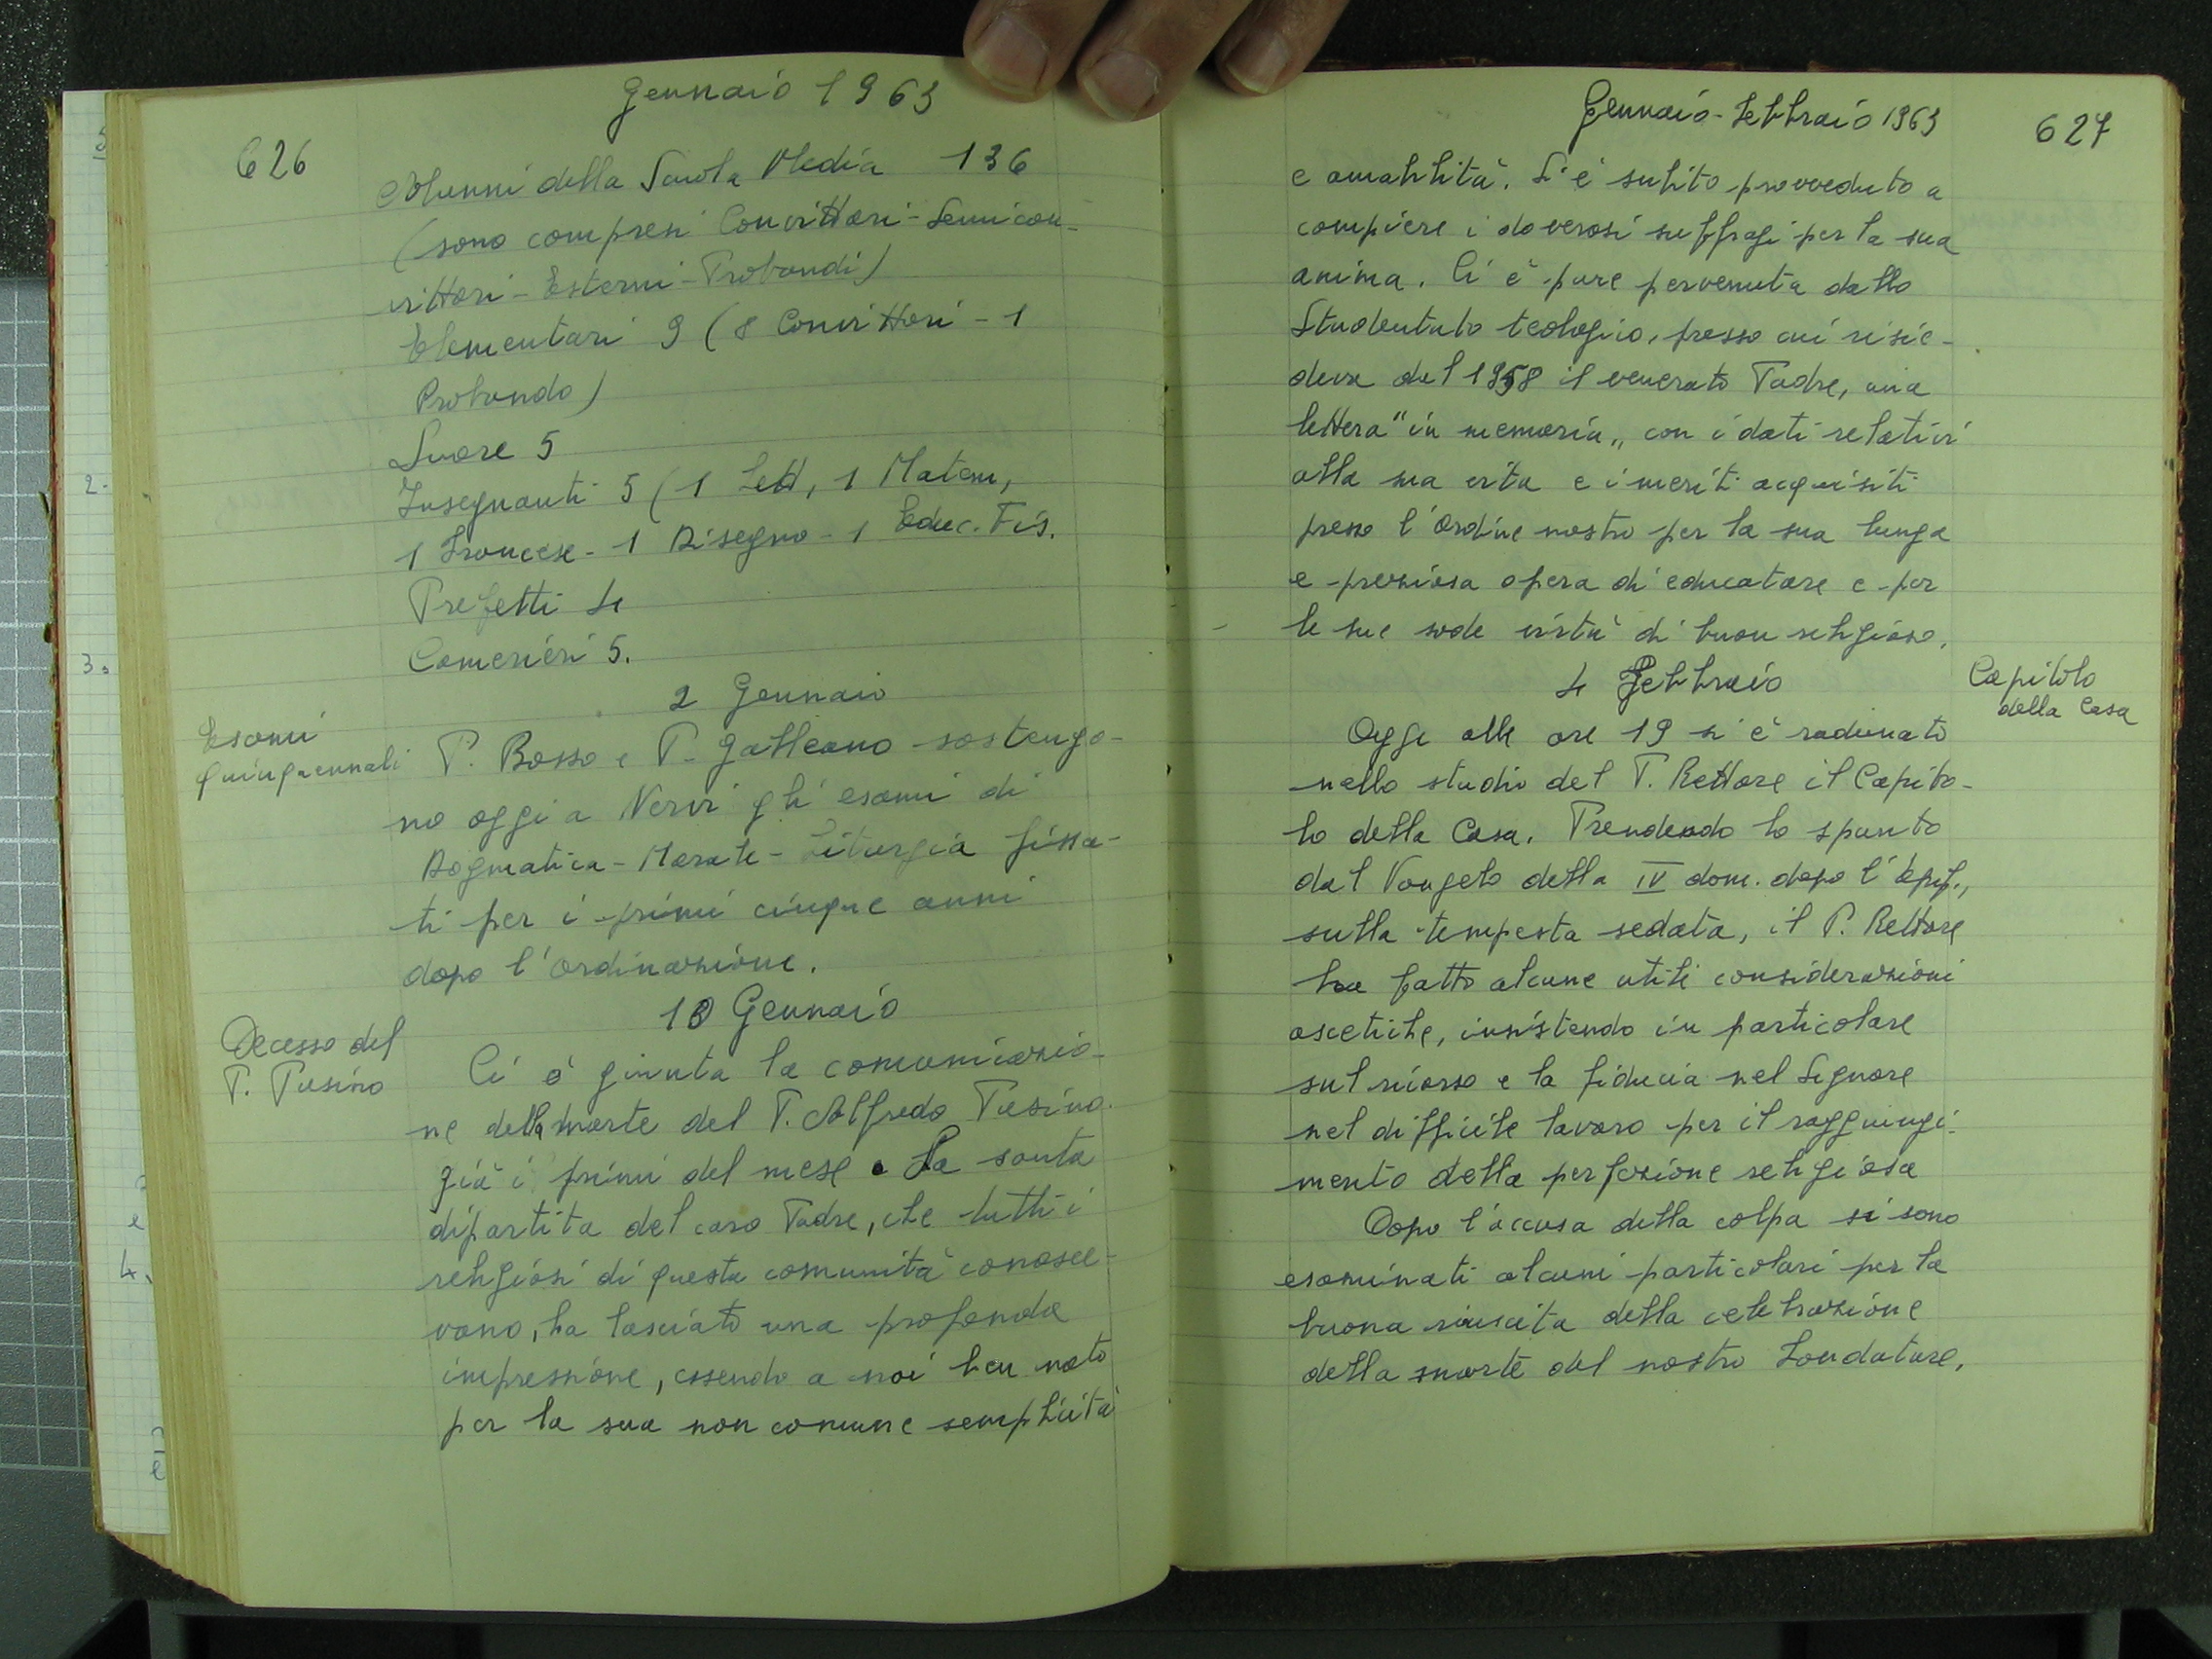 Gennaio 1963
626
Alunni della Scuola Media 136
(sono compresi Convittori - Semicon-
vittori - Esterni - Probandi)
Elementari 9 (8 Convittori - 1
Probando)
Suore 5
Insegnanti 5 (1 Lett, 1 Matem,
1 Francese - 1 Disegno - 1 Educ. Fis.
Prefetti 4
Camerieri 5.
2 Gennaio
Esami
quinquennali
P. Bosso e P. Galleano sostengo-
no oggi a Nervi gli esami di
Dogmatica - Morale - Liturgia fissa-
ti per i primi cinque anni
dopo l'Ordinazione.
Gennaio
Decesso del
P. Pusino
Ci è giunta la comunicazio-
ne della morte del P. Alfredo Pusino.
già i primi del mese. La santa
dipartita del caro Padre, che tutti i
religiosi di questa comunità conosce-
vano, ha lasciato una profonda
impressione, essendo a noi ben noto
per la sua non comune semplicità
Gennaio - Febbraio 1963
627
e amabilità. Si è subito provveduto a
compiere i doverosi suffragi per la sua
anima. Ci è pure pervenuta dallo
Studentato teologico, presso cui risie-
deva dal 1958 il venerato Padre, una
lettera "in memoria„ con i dati relativi
alla sua vita e i meriti acquisiti
presso l'Ordine nostro per la sua lunga
e preziosa opera di educatore e per
le sue sode virtù di buon religioso.
4 Febbraio
Capitolo
della Casa
Oggi alle ore 19 si è radunato
nello studio del P. Rettore il Capito-
lo della Casa. Prendendo lo spunto
dal Vangelo della IV dom. dopo l'Epif.,
sulla tempesta sedata, il P. Rettore
ha fatto alcune utili considerazioni
ascetiche, insistendo in particolare
sul ricorso e la fiducia nel Signore
nel difficile lavoro per il raggiungi-
mento della perfezione religiosa
Dopo l'accusa della colpa si sono
esaminati alcuni particolari per la
buona riuscita della celebrazione
della morte del nostro Fondatore,